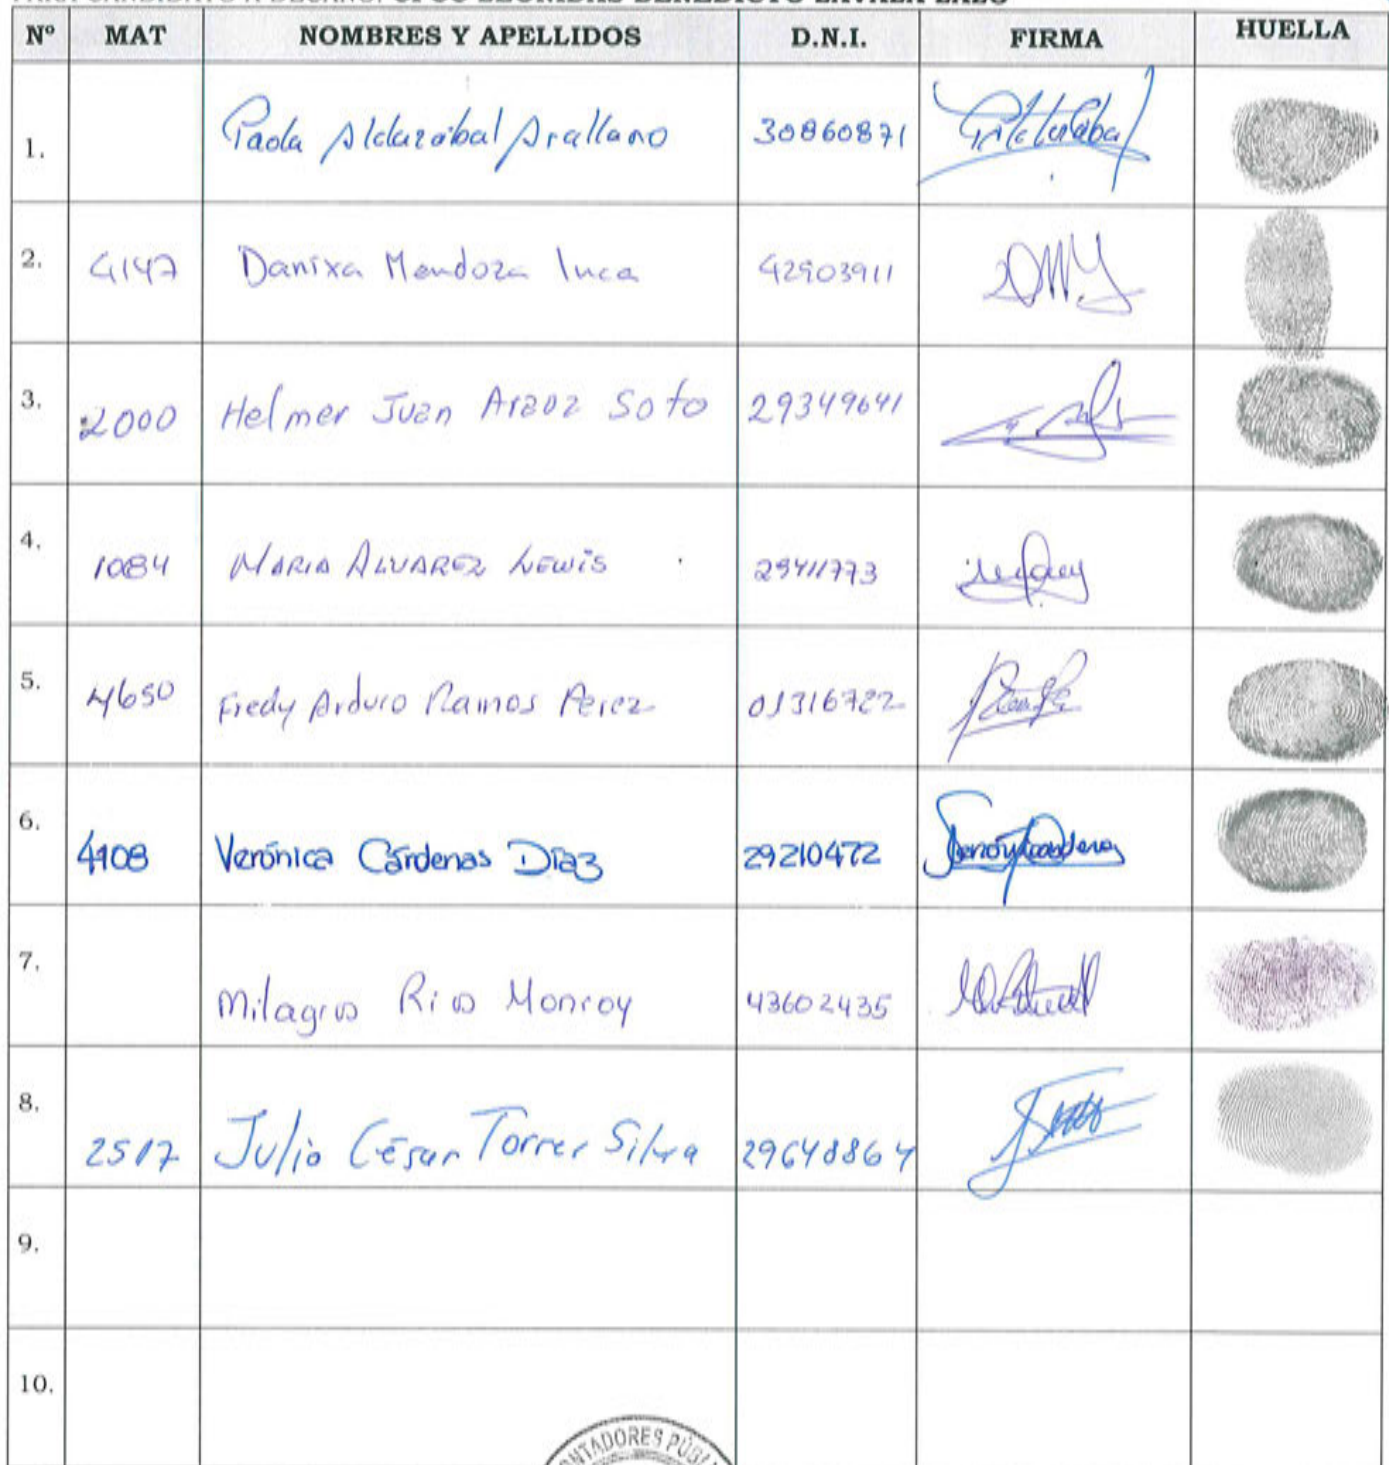 Nº MAT NOMBRES Y APELLIDOS D.N.I. FIRMA HUELLA
1. Paola Aldazábal Arallano 30860871
2. 4147 Danixa Mendoza Inca 42903911
3. 2000 Helmer Juan Araoz Soto 29349641
4. 1084 MARIA ALVAREZ LEWIS 29411773
5. 4650 Fredy Arduro Ramos Perez 01316722
6. 4108 Verónica Cárdenas Díaz 29210472
7. Milagros Rios Monroy 43602435
8. 2517 Julio César Torres Silva 29648864
9.
10.